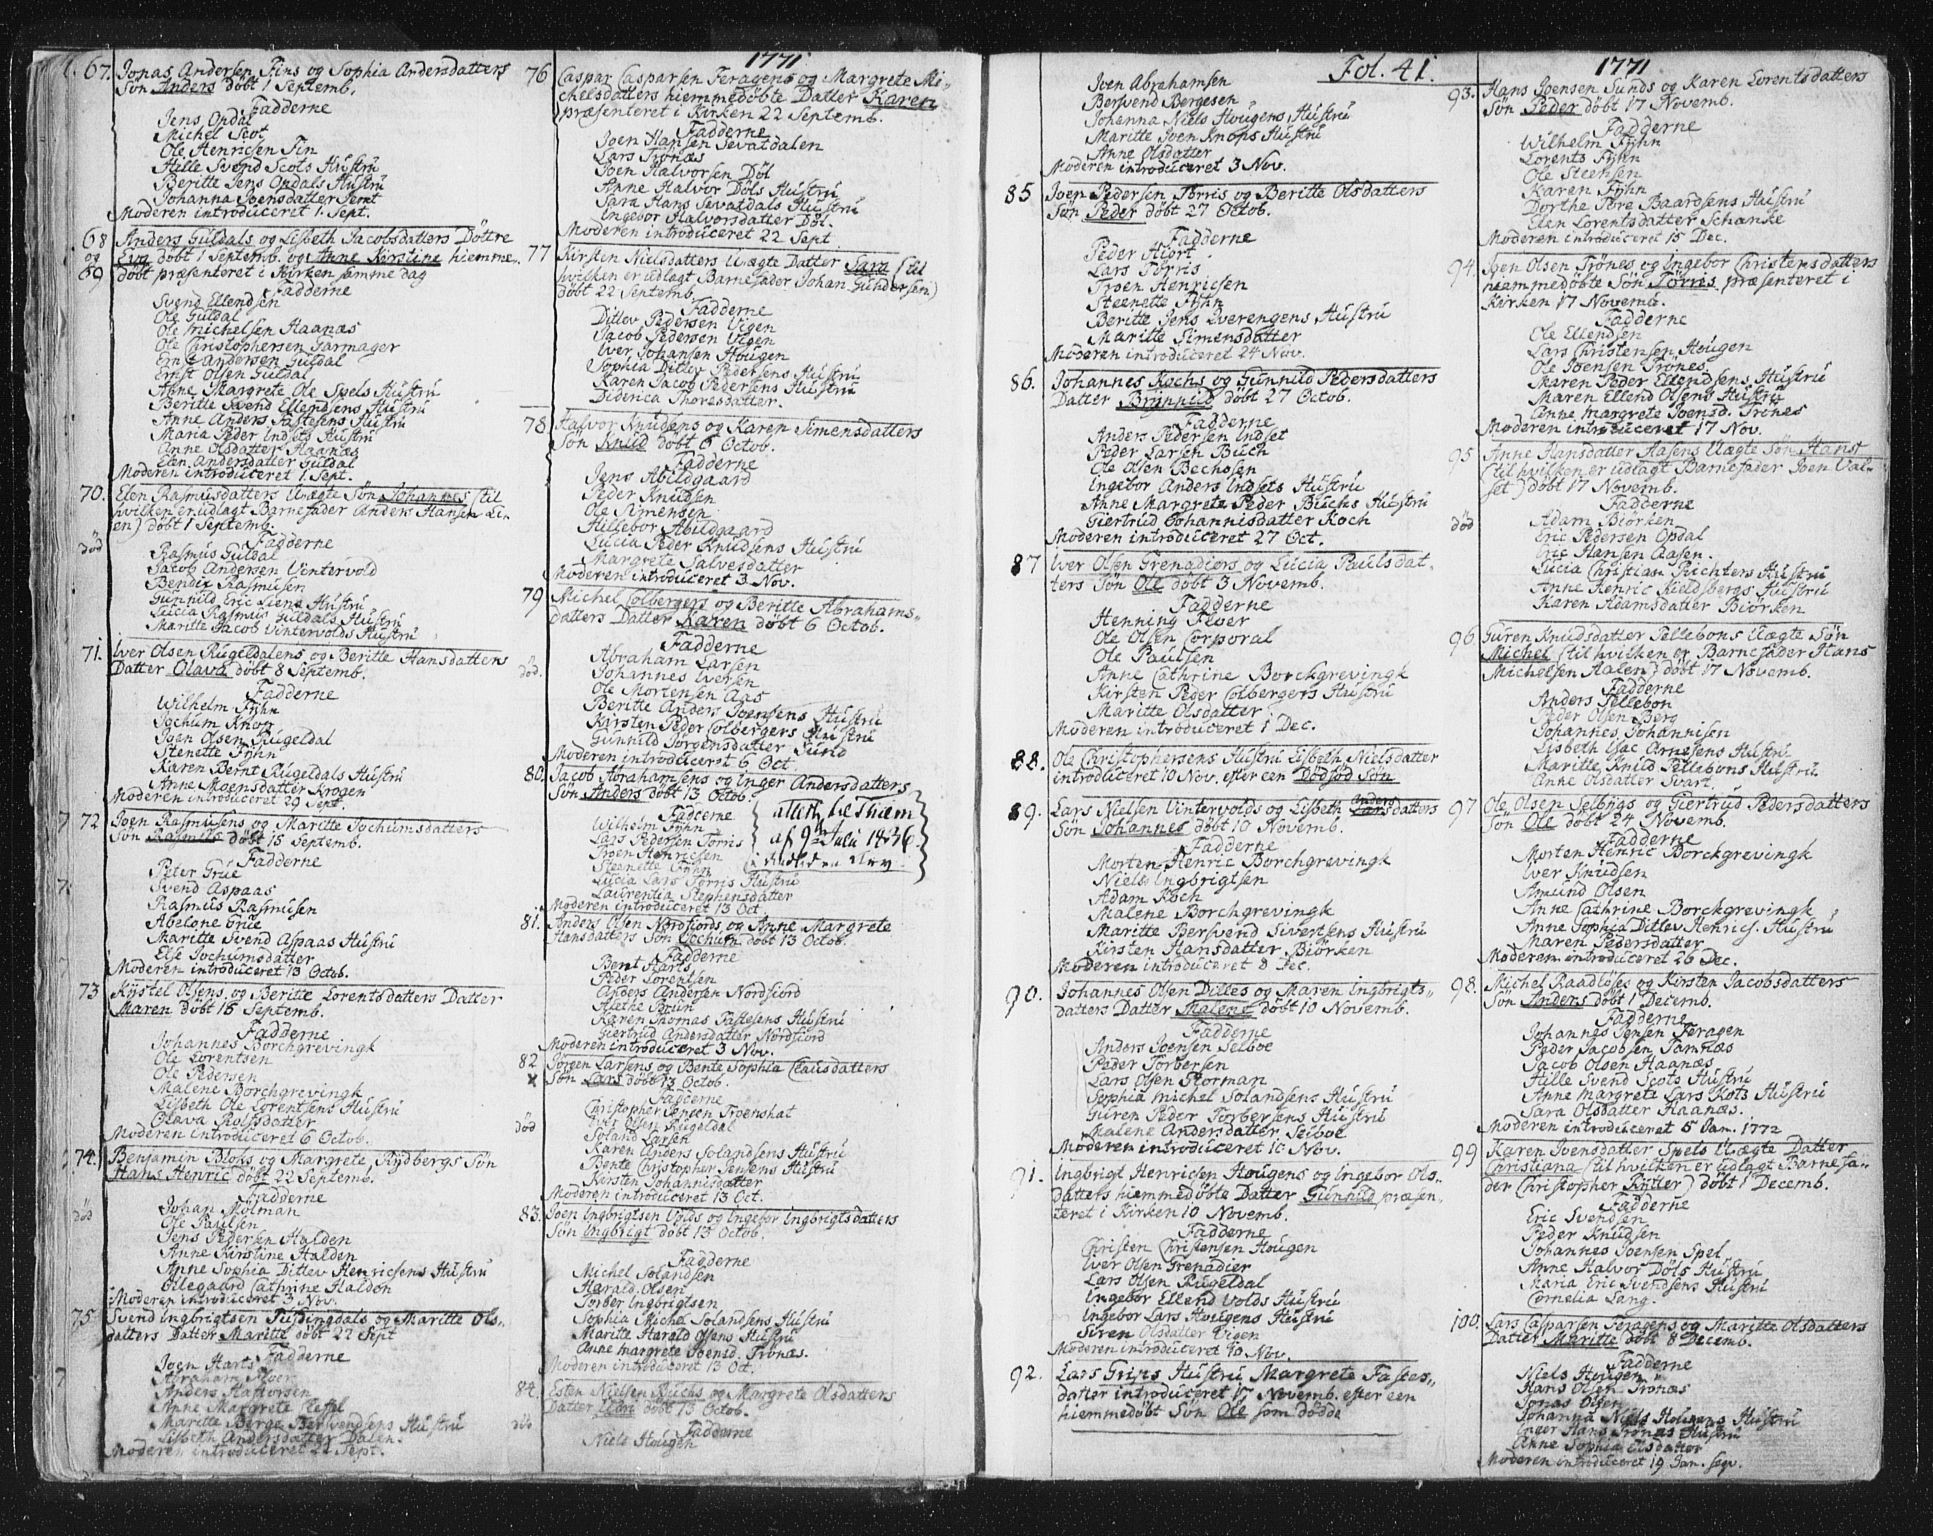 1771
67. Jonas Andersen Fins og Sophia Andersdatters
Søn Anders døbt 1 Septemb.
Fadderne
Jens Opdal
Michel Scot
Ole Henricsen Fin
Hille Svend Scots Hustru
Beritte Jens Opdals Hustru
Johanna Joensdatter
Moderen introduceret 1. Sept.
68 Anders Guldals og Lisbeth Jacobsdatters Døttre
og Eva døbt 1 Septemb. og Anne Kirstine hiemme-
69 døbt præsenteret i Kirken samme dag
Fadderne
Svend Ellendsen
Ole Guldal
Ole Michelsen Haanæs
Ole Christophersen Garmager
Ernst Andersen Guldal
Ernst Olsen Guldal
Anne Margrete Ole Spels Hustru
Beritte Svend Ellendsens Hustru
Anne Anders Fastesens Hustru
Maria Peder Indsets Hustru
Anne Olsdatter Haanæs
Elen Andersdatter Guldal
Moderen introduceret 1. Sept.
70. Elen Rasmusdatters Uægte Søn Johannes (til
hvilken er udlagt Barnefader Anders Hansen Li-
en) døbt 1 Septemb.
Fadderne
død Rasmus Guldal
Jacob Andersen Vintervold
Bendix Rasmusen
Gunnild Eric Liens Hustru
Lucia Rasmus Guldals Hustru
Maritte Jacob Vintervolds Hustru
71. Iver Olsen Rugeldalens og Beritte Hansdatters
Datter Olava døbt 8 Septemb.
Fadderne
Wilhelm Fyhn
Jochum Knop
Joen Olsen Rugeldal
Stenette Fyhn
Karen Bernt Rugeldals Hustru
Anne Moensdatter Krogen
Moderen introduceret 29 Sept.
72 Joen Rasmusens og Maritte Jochumsdatters
Søn Rasmus døbt 15 Septemb.
Fadderne
Peter Grue
Svend Aspaas
Rasmus Rasmusen
Abelone Grue
Maritte Svend Aspaas Hustru
Else Jochumsdatter
Moderen introduceret 13 Octob.
73 Kystel Olsens og Beritte Lorentsdatters Datter
Maren døbt 16 Septemb.
Fadderne
Johannes Borchgrevingk
Ole Lorentsen
Ole Pedersen
Malene Borchgrevingk
Lisbeth Ole Lorentsens Hustru
Olava Rolfsdatter
Moderen introduceret 6 Octob.
74. Benjamin Bloks og Margrete Rydbergs Søn
Hans Henric døbt 22 Septemb.
Fadderne
død Johan Molman
Ole Paulsen
Jens Pedersen Halden
Anne Kirstine Halden
Anne Sophia Ditlev Henricsens Hustru
Oilegaard Cathrine Haldon
Moderen introduceret 3 Nov.
75 Svend Ingbrigtsen Tufsingdals og Maritte Ols-
datters Datter Maritte døbt 22 Sept
Fadderne
Joen Harts
Abraham Aver
Anders Halvorsen
Anne Margrete Klefsel
Maritte Berge Bersvendsens Hustru
Lisbeth Andersdatter Dalen
Moderen introduceret 22 Sept.
76 Caspar Casparsen Feragens og Margrete Mi-
chelsdatters hiemmedøbte Datter Karen
præsenteret i Kirken 22 Septemb.
Fadderne
Joen Hansen Sevatdalen
Lars Trønæs
Joen Halvorsen Døl
Anne Halvor Døls Hustru
Sara Hans Sevatdals Hustru
Ingebor Halvorsdatter Døl.
Moderen introduceret 22 Sept
77 Kirsten Nielsdatters Uægte Datter Sara (til
hvilken er udlagt Barnefader Johan Gundersen)
døbt 22 Septemb.
Fadderne
Ditlev Pedersen Vigen
Jacob Pedersen Vigen
Iver Johansen Hougen
Sophia Ditlev Pedersens Hustru
Karen Jacob Pedersens Hustru
Diderica Thoresdatter.
78 Halvor Knudsens og Karen Simensdatters
Søn Knud døbt 6 Octob.
Fadderne
Jens Abildgaard
Peder Knudsen
Ole Simensen
Hillebor Abildgaard
Lucia Peder Knudsens Hustru
Margrete Salvesdatter
Moderen introduceret 3 Nov.
79 Michel Colbergers og Beritte Abrahams-
datters Datter Karen døbt 6 Octob.
Fadderne
død. Abraham Larsen
Johannes Iversen
Ole Mortensen Aas
Beritte Anders Joensens Hustru
Kirsten Peder Colbergers Hustru
Gunnild Jørgensdatter Sund
Moderen introduceret 6 Oct
80. Jacob Abrahamsens og Inger Andersdatters
Søn Anders døbt 13 Octob.
Fadderne
Wilhelm Fyhn
Lars Pedersen Torris
Troen Henricsen
Steenette Fyhn
Lucia Lars Torris Hustru
Laurentia Stephensdatter
Moderen introduceret 13 Oct
af 9de Juli 1836
81. Anders Olsen Nordfiords og Anne Margrete
Hansdatters Søn Jochum døbt 13 Octob.
Fadderne
Bernt Harts
Peder Lorentsen
Anders Andersen Nordfiord
Brun
Karen Thomas Fastesens Hustru
Giertrud Andersdatter Nordfiord
Moderen introduceret 3 Nov.
82 Jørgen Larsens og Bente Sophia Clausdatters
x Søn Lars døbt 13 Octob.
Fadderne
død Christopher Jensen Troenshat
Iver Olsen Rugeldal
Soland Larsen
Karen Anders Solandsens Hustru
Bente Christopher Jensens Hustru
Kirsten Johannisdatter
Moderen introduceret 13 Oct.
83. Joen Ingbrigtsen Volds og Ingebor Ingbrigtsdatters
Søn Ingbrigt døbt 13 Octob.
Fadderne
Michel Solandsen
Harald Olsen
Torber Ingbrigtsen
Sophia Michel Solandsens Hustru
Maritte Harald Olsens Hustru
Anne Margrete Joensd. Trønæs.
Moderen introduceret 13 Oct.
84. Esten Nielsen Buchs og Margrete Olsdatters
Datter døbt 13 Octob.
død Fadderne
Niels Hougen
Fol. 41. 1771
Joen Abrahamsen
Bersvend Bergesen
Johanna Niels Hougens Hustru
Maritte Joen Knops Hustru
Anne Olsdatter
Moderen introduceret 3 Nov.
85 Joen Pedersen Torris og Beritte Olsdatters
Søn Peder døbt 27 Octob.
Fadderne
Peder Hiort
Lars Torris
Troen Henricsen
Steenette Fyhn
Beritte Jens Qverengens Hustru
Maritte Simensdatter
Moderen introduceret 24 Nov.
86. Johannes Kochs og Gunnild Pedersdatters
Datter Brynnild døbt 27 Octob.
Fadderne
Anders Pedersen Indset
Peder Larsen Buch
Ole Olsen Bechosen
Ingebor Anders Indsets Hustru
Anne Margrete Peder Buchs Hustru
Giertrud Johannisdatter Koch
Moderen introduceret 27 Oct.
87 Iver Olsen Grenadiers og Lucia Paulsdat-
ters Søn Ole døbt 3 Novemb.
Fadderne
Henning Fever
Ole Olsen Corporal
Ole Paulsen
Anne Cathrine Borckgrevingk
Kirsten Peder Colbergers Hustru
Maritte Olsdatter
Moderen introduceret 1 Dec.
88. Ole Christophersens Hustru Lisbeth Nielsdatter
introduceret 10 Nov. efter een Dødfød Søn
89. Lars Nielsen Vintervolds og Lisbeth Andersdatters
Søn Johannes døbt 10 Novemb.
Fadderne
Morten Henric Borchgrevingk
Niels Ingbrigtsen
Adam Koch
Malene Borchgrevingk
Maritte Bersvend Sivertsens Hustru
Kirsten Hansdatter Biørken
Moderen introduceret 8 Dec.
90. Johannes Olsen Dilles og Maren Ingbrigts-
datters Datter Malene døbt 10 Novemb.
Fadderne
Anders Joensen Selboe
Peder Torbersen
Lars Olsen Storman
Sophia Michel Solandsens Hustru
Guren Peder Torbersens Hustru
Malene Andersdatter Selboe
Moderen introduceret 10 Nov.
91. Ingbrigt Henricsen Hougens og Ingebor Ols-
datters hiemmedøbte Datter Gunnild præsen-
teret i Kirken 10 Novemb.
Fadderne
Christen Christensen Hougen
Iver Olsen Grenadier
Lars Olsen Rugeldal
Ingebor Ellend Volds Hustru
Ingebor Lars Hougens Hustru
Siren Olsdatter Vigen
Moderen introduceret 10 Nov.
92. Lars Grips Hustru Margrete Fastes-
datter introduceret 17 Novemb. efter een
hiemmedøbt Søn Ole som døde
93. Hans Joensen Sunds og Karen Lorentsdatters
Søn Peder døbt 17 Novemb.
Fadderne
Wilhelm Fyhn
Lorents Fyhn
Ole Steensen
Karen Fyhn
Dorthe Tore Baardsens Hustru
Elen Lorentsdatter Schanke
Moderen introduceret 15 Dec.
94. Joen Olsen Trønes og Ingebor Christensdatters
hiemmedøbte Søn Torres præsenteret i
Kirken 17 Novemb.
Fadderne
Ole Ellendsen
Lars Christensen Hougen
Ole Joensen Trønes
Karen Peder Ellendsens Hustru
Maren Ellend Olsens Hustru
Anne Margrete Joensd. Trønes
Moderen introduceret 17 Nov.
95 Anne Hansdatter Aasens Uægte Søn Hans
(til hvilken er udlagt Barnefader Joen Val-
set) døbt 17 Novemb.
Fadderne
død Adam Biørken
Eric Pedersen Opdal
Eric Hansen Aasen.
Lucia Christian Richters Hustru
Anne Henric Kieldsbergs Hustru
Karen Adamsdatter Biørken
96 Guren Knudsdatter Tellebons Uægte Søn
Michel (til hvilken er Barnefader Hans
Michelsen Aalen) døbt 17 Novemb.
Fadderne
Anders Tellebon
Peder Olsen Berg
Johannes Johannisen
Lisbeth Isac Arnesens Hustru
Maritte Knud Tellebons Hustru
Anne Olsdatter Svart.
97 Ole Olsen Selboes og Giertrud Pedersdatters
Søn Ole døbt 24 Novemb.
Fadderne
Morten Henric Borckgrevingk
Iver Knudsen
Amund Olsen
Anne Cathrine Borckgrevingk
Anne Sophia Ditlev Henrics. Hustru
Maren Pedersdatter
Moderen introduceret 26 Dec.
98. Michel Raadløses og Kirsten Jacobsdatters
Søn Anders døbt 1 Decemb.
Fadderne
Johannes Jensen Feragen
Peder Jacobsen Tamnæs
Jacob Olsen Haanæs
Hille Svend Scots Hustru
Anne Margrete Lars Kots Hustru
Sara Olsdatter Haanæs.
Moderen introduceret 5 Jan. 1772
99 Karen Ivensdatter Spels Uægte Datter
Christiana (til hvilken er udlagt Barnefa-
der Christopher Rytter) døbt 1 Decemb.
Fadderne
Eric Svendsen
Peder Knudsen
Johannes Joensen Spel
Anne Halvor Døls Hustru
Maria Eric Svendsens Hustru
Cornelia Lang.
100. Lars Casparsen Feragens og Maritte Olsdatters
Datter Maritte døbt 8 Decemb.
Fadderne
Niels Hougen
Hans Olsen Trønæs
Jonas Olsen
Johanna Niels Hougens Hustru
Inger Hans Trønæs Hustru
Anne Sophia Elsdatter
Moderen introduceret 19 Jan. seqv.